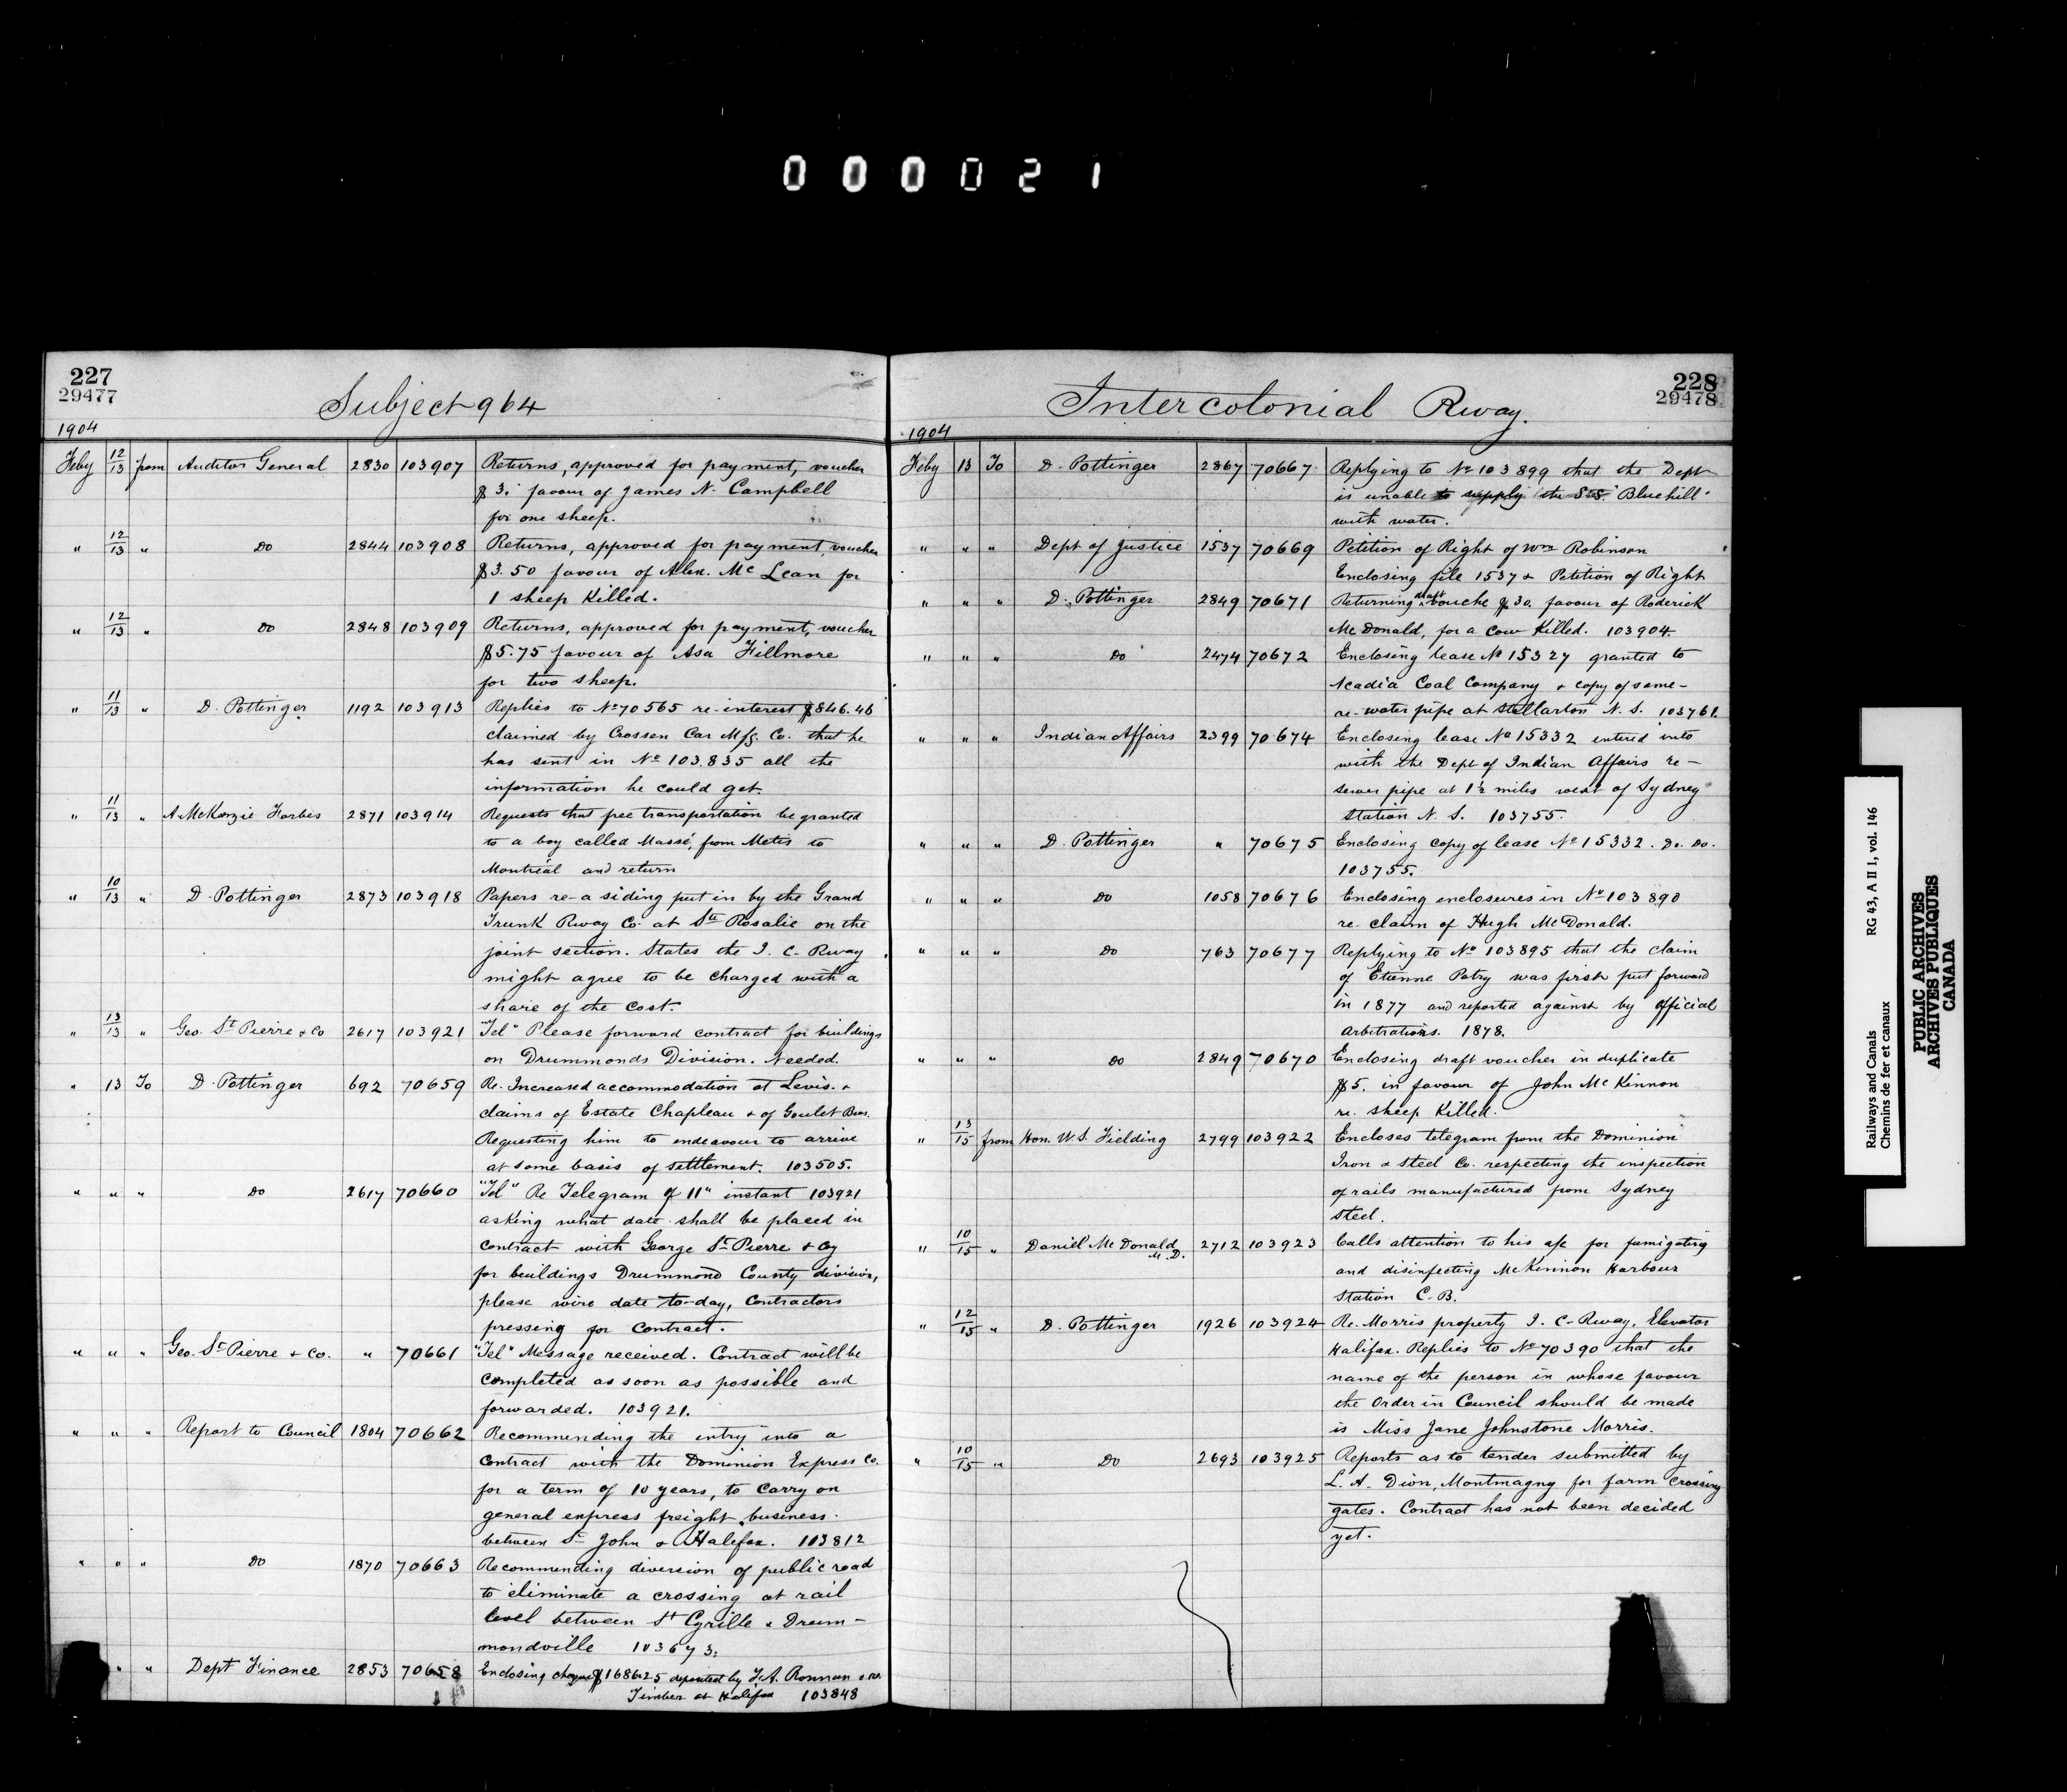 000021
227
29477
Subject 964
1904
Feby 12/13 from Auditor General 2830 103907 Returns, approved for payment, voucher
$3. favour of James N. Campbell
for one sheep.
" 12/13 " Do 2844 103908 Returns, approved for payment, voucher
$3.50 favour of Alex. Mc Lean for
1 sheep Killed.
" 12/13 " Do 2848 103909 Returns, approved for payment, voucher
$5.75 favour of Asa Fillmore
for two sheep.
" 11/13 " D. Pottinger 1192 103913 Replies to No 70565 re-interest $846.46
claimed by Crossen Car Mfg. Co. that he
has sent in No 103.835 all the
information he could get.
" 11/13 " A McKenzie Forbes 2871 103914 Requests that free transportation be granted
to a boy called Massé, from Metis to
Montréal and return
" 10/13 " D. Pottinger 2873 103918 Papers re-a siding put in by the Grand
Trunk Rway Co. at Ste Rosalie on the
joint section. States the I. C. Rway
might agree to be charged with a
share of the cost.
" 13/13 " Geo. St Pierre & Co 2617 103921 "Tel" Please forward contract for buildings
on Drummonds Division. Needed.
" 13 To D. Pottinger 692 70659 Re. Increased accommodation at Levis. &
claims of Estate Chapleau & of Goulet Bros.
Requesting him to endeavour to arrive
at some basis of settlement. 103505.
" " " Do 2617 70660 "Tel" Re Telegram of 11" instant 103921
asking what date shall be placed in
contract with George St Pierre & Coy
for buildings Drummond County division,
please wire date to-day, Contractors
pressing for Contract.
" " " Geo. St Pierre & Co. " 70661 "Tel" Message received. Contract will be
completed as soon as possible and
forwarded. 103921.
" " " Report to Council 1804 70662 Recommending the entry into a
Contract with the Dominion Express Co.
for a term of 10 years, to carry on
general express freight business
between St John & Halifax. 103812
" " " Do 1870 70663 Recommending diversion of public road
to eliminate a crossing at rail
level between St Cyrille & Drum-
mondville 103673.
" " Dept Finance 2853 70658 Enclosing cheque $16862.5 deposited by F. A. Ronnan & re.
Timber at Halifax 103848
228
29478
Intercolonial Rway.
1904
Feby 13 To D. Pottinger 2867 70667 Replying to No 103899 that the Dept
is unable to supply the S.S. "Bluehill"
with water.
" " " Dept of Justice 1537 70669 Petition of Right of Wm Robinson
Enclosing file 1537 & Petition of Right
" " " D. Pottinger 2849 70671 Returning draft vouche $30. favour of Roderick
McDonald, for a Cow Killed. 103904.
" " " Do 2474 70672 Enclosing lease No 15327 granted to
Acadia Coal Company & copy of same-
re-water pipe at Stellarton N. S. 103761.
" " " Indian Affairs 2399 70674 Enclosing lease No 15332 entered into
with the Dept of Indian Affairs re-
sewer pipe at 1½ miles west of Sydney
Station N. S. 103755.
" " " D. Pottinger " 70675 Enclosing copy of lease No 15332. Do. Do.
103755.
" " " Do 1058 70676 Enclosing enclosures in No 103890
re- claim of Hugh McDonald.
" " " Do 763 70677 Replying to No 103895 that the claim
of Etienne Patry was first put forward
in 1877 and reported against by Official
Arbitrations. 1878.
" " " Do 2849 70670 Enclosing draft voucher in duplicate
$5. in favour of John McKinnon
re. sheep Killed.
" 13/15 from Hon. W.S. Fielding 2799 103922 Encloses telegram from the Dominion
Iron & Steel Co. respecting the inspection
of rails manufactured from Sydney
Steel.
" 10/15 " Daniel McDonald M.D. 2712 103923 Calls attention to his a/c for fumigating
and disinfecting McKinnon Harbour
Station C.B.
" 12/15 " D. Pottinger 1926 103924 Re. Morris property I. C. Rway, Elevator
Halifax. Replies to No 70390 that the
name of the person in whose favour
the Order in Council should be made
is Miss Jane Johnstone Morris.
" 10/15 " Do 2693 103925 Reports as to tender submitted by
L. A. Dion, Montmagny for farm crossing
gates. Contract has not been decided
yet.
Railways and Canals
Chemins de fer et canaux
RG 43, A II 1, vol. 146
PUBLIC ARCHIVES
ARCHIVES PUBLIQUES
CANADA